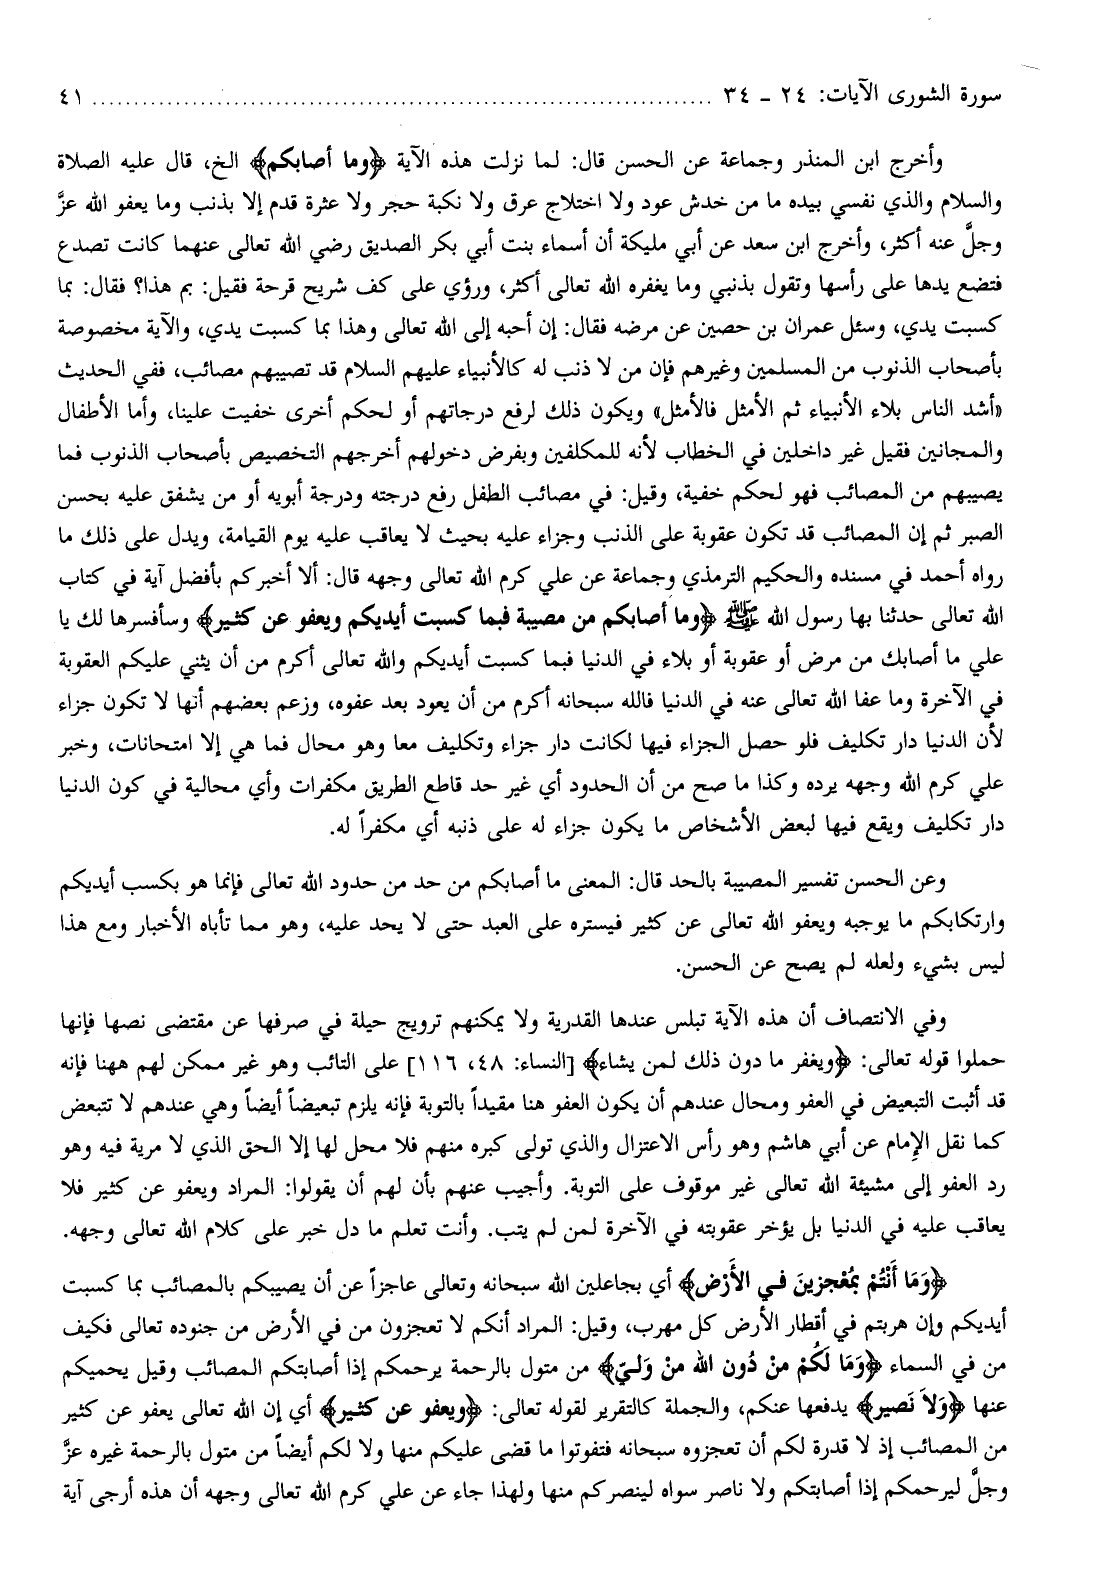 سورة الشورى الآيات: ٢٤ - ٣٤ ........................................................................ ٤١
وأخرج ابن المنذر وجماعة عن الحسن قال: لما نزلت هذه الآية ﴿وما أصابكم﴾ الخ، قال عليه الصلاة
والسلام والذي نفسي بيده ما من خدش عود ولا اختلاج عرق ولا نكبة حجر ولا عثرة قدم إلا بذنب وما يعفو الله عزَّ
وجلَّ عنه أكثر، وأخرج ابن سعد عن أبي مليكة أن أسماء بنت أبي بكر الصديق رضي الله تعالى عنهما كانت تصدع
فتضع يدها على رأسها وتقول بذنبي وما يغفره الله تعالى أكثر، ورؤي على كف شريح قرحة فقيل: بم هذا؟ فقال: بما
كسبت يدي، وسئل عمران بن حصين عن مرضه فقال: إن أحبه إلى الله تعالى وهذا بما كسبت يدي، والآية مخصوصة
بأصحاب الذنوب من المسلمين وغيرهم فإن من لا ذنب له كالأنبياء عليهم السلام قد تصيبهم مصائب، ففي الحديث
«أشد الناس بلاء الأنبياء ثم الأمثل فالأمثل» ويكون ذلك لرفع درجاتهم أو لحكم أخرى خفيت علينا، وأما الأطفال
والمجانين فقيل غير داخلين في الخطاب لأنه للمكلفين وبفرض دخولهم أخرجهم التخصيص بأصحاب الذنوب فما
يصيبهم من المصائب فهو لحكم خفية، وقيل: في مصائب الطفل رفع درجته ودرجة أبويه أو من يشفق عليه بحسن
الصبر ثم إن المصائب قد تكون عقوبة على الذنب وجزاء عليه بحيث لا يعاقب عليه يوم القيامة، ويدل على ذلك ما
رواه أحمد في مسنده والحكيم الترمذي وجماعة عن علي كرم الله تعالى وجهه قال: ألا أخبركم بأفضل آية في كتاب
الله تعالى حدثنا بها رسول الله ﷺ ﴿وما أصابكم من مصيبة فبما كسبت أيديكم ويعفو عن كثير﴾ وسأفسرها لك يا
علي ما أصابك من مرض أو عقوبة أو بلاء في الدنيا فبما كسبت أيديكم والله تعالى أكرم من أن يثني عليكم العقوبة
في الآخرة وما عفا الله تعالى عنه في الدنيا فالله سبحانه أكرم من أن يعود بعد عفوه، وزعم بعضهم أنها لا تكون جزاء
لأن الدنيا دار تكليف فلو حصل الجزاء فيها لكانت دار جزاء وتكليف معا وهو محال فما هي إلا امتحانات، وخبر
علي كرم الله وجهه يرده وكذا ما صح من أن الحدود أي غير حد قاطع الطريق مكفرات وأي محالية في كون الدنيا
دار تكليف ويقع فيها لبعض الأشخاص ما يكون جزاء له على ذنبه أي مكفراً له.
وعن الحسن تفسير المصيبة بالحد قال: المعنى ما أصابكم من حد من حدود الله تعالى فإنما هو بكسب أيديكم
وارتكابكم ما يوجبه ويعفو الله تعالى عن كثير فيستره على العبد حتى لا يحد عليه، وهو مما تأباه الأخبار ومع هذا
ليس بشيء ولعله لم يصح عن الحسن.
وفي الانتصاف أن هذه الآية تبلس عندها القدرية ولا يمكنهم ترويج حيلة في صرفها عن مقتضى نصها فإنها
حملوا قوله تعالى: ﴿ويغفر ما دون ذلك لمن يشاء﴾ [النساء: ٤٨، ١١٦] على التائب وهو غير ممكن لهم ههنا فإنه
قد أثبت التبعيض في العفو ومحال عندهم أن يكون العفو هنا مقيداً بالتوبة فإنه يلزم تبعيضاً أيضاً وهي عندهم لا تتبعض
كما نقل الإِمام عن أبي هاشم وهو رأس الاعتزال والذي تولى كبره منهم فلا محل لها إلا الحق الذي لا مرية فيه وهو
رد العفو إلى مشيئة الله تعالى غير موقوف على التوبة. وأجيب عنهم بأن لهم أن يقولوا: المراد ويعفو عن كثير فلا
يعاقب عليه في الدنيا بل يؤخر عقوبته في الآخرة لمن لم يتب. وأنت تعلم ما دل خبر على كلام الله تعالى وجهه.
﴿وَمَا أَنْتُمْ بِمُعْجِزِينَ فِي الأَرْضِ﴾ أي بجاعلين الله سبحانه وتعالى عاجزاً عن أن يصيبكم بالمصائب بما كسبت
أيديكم وإن هربتم في أقطار الأرض كل مهرب، وقيل: المراد أنكم لا تعجزون من في الأرض من جنوده تعالى فكيف
من في السماء ﴿وَمَا لَكُمْ مِنْ دُونِ الله مِنْ وَلِيّ﴾ من متول بالرحمة يرحمكم إذا أصابتكم المصائب وقيل يحميكم
عنها ﴿وَلاَ نَصِير﴾ يدفعها عنكم، والجملة كالتقرير لقوله تعالى: ﴿ويعفو عن كثير﴾ أي إن الله تعالى يعفو عن كثير
من المصائب إذ لا قدرة لكم أن تعجزوه سبحانه فتفوتوا ما قضى عليكم منها ولا لكم أيضاً من متول بالرحمة غيره عزَّ
وجلَّ ليرحمكم إذا أصابتكم ولا ناصر سواه لينصركم منها ولهذا جاء عن علي كرم الله تعالى وجهه أن هذه أرجى آية